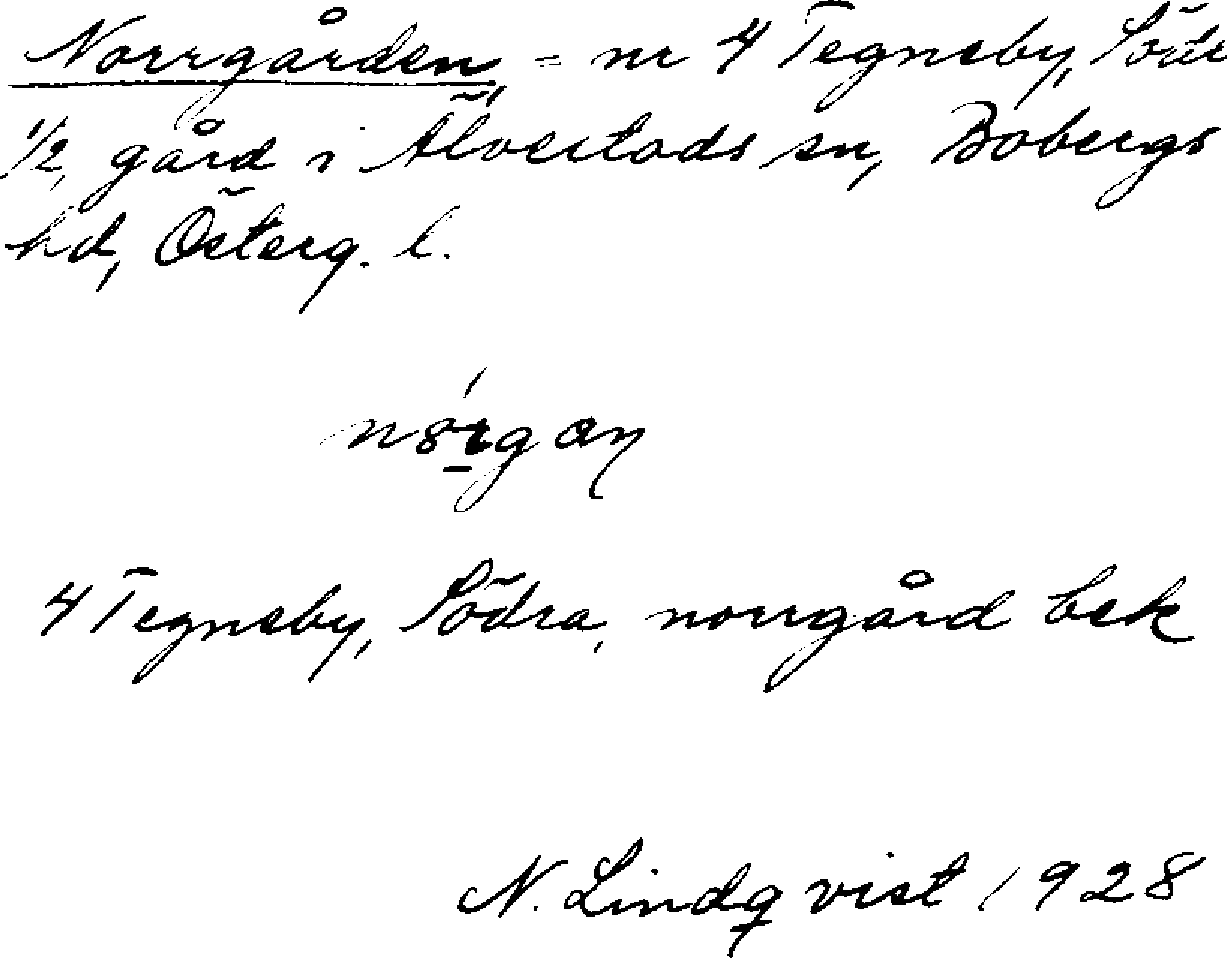 Norrgården, = nr 4 Tegneby, Södr
1/2, gård i Älvestads sn, Bobergs
hd, Österg. l.
4 Tegneby, Södra, norrgård bek
N. Lindqvist 1928